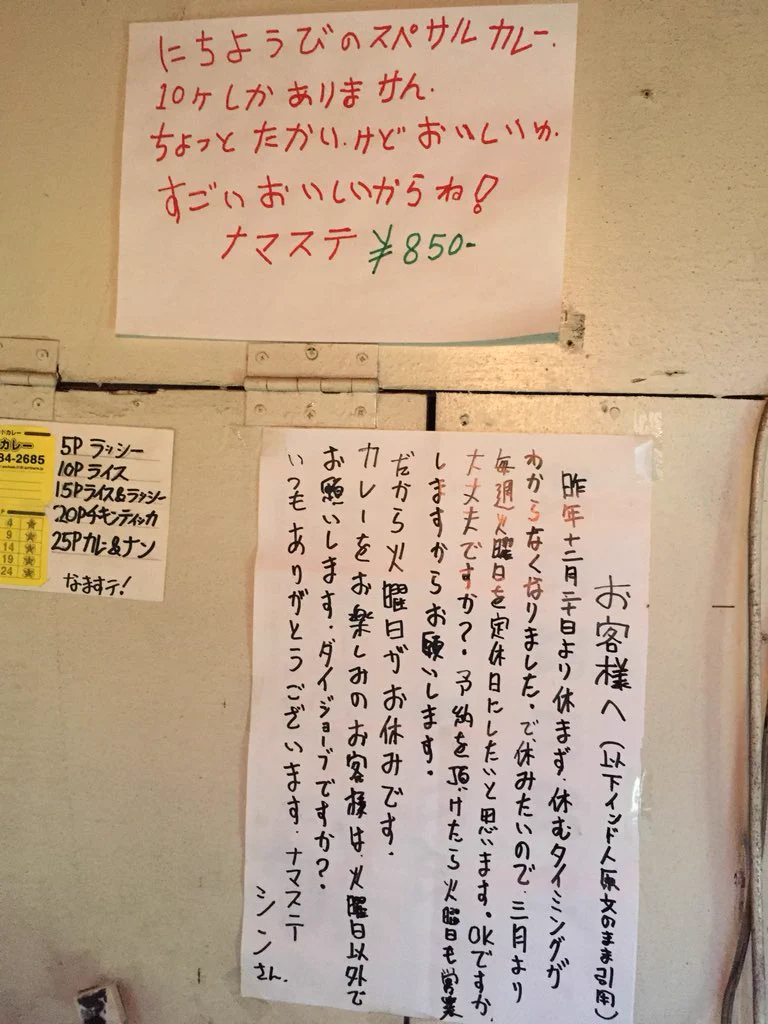 にちようびのスペサルカレー.
10ケしかありません.
ちょっとたかい.けどおいしいゆ.
すごいおいしいからね!
ナマステ ¥850-
カレー
84-2685
4 ★
9 ★
14 ★
19 ★
24 ★
5P ラッシー
10P ライス
15P ライス&ラッシー
20P チキンティッカ
25P カレー&ナン
なますテ!
お客様へ(以下インド人原文のまま引用)
昨年十二月二十日より休まず、休むタイミングが
わからなくなりました。で、休みたいので、三月より
毎週火曜日を定休日にしたいと思います。OKですか、
大丈夫ですか?・予約を頂けたら火曜日も営業
しますからお願いします。
だから火曜日がお休みです.
カレーをお楽しみのお客様は、火曜日以外で
お願いします.ダイジョーブですか?
いつもありがとうございます.ナマステー
シンさん.